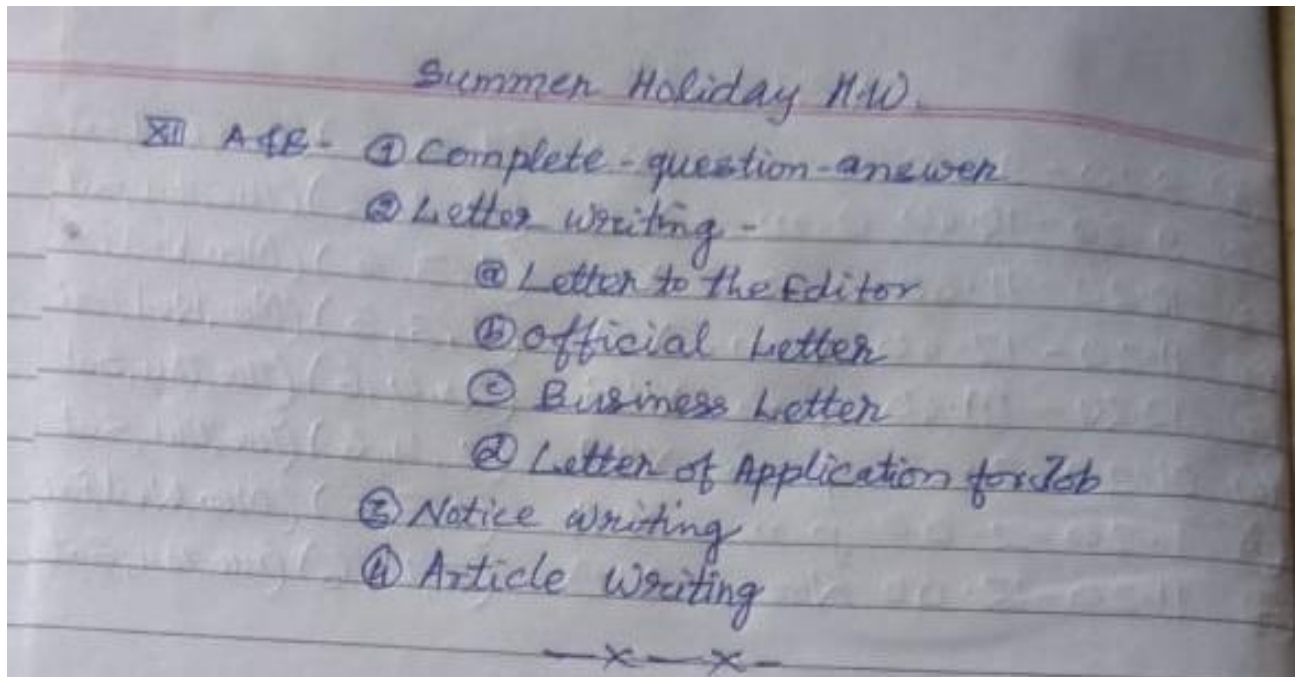 Summer Holiday H.W.
XII A & B - ① Complete - question - answer
② Letter Writing -
ⓐ Letter to the Editor
ⓑ Official Letter
ⓒ Business Letter
ⓓ Letter of Application for Job
③ Notice Writing
④ Article Writing
—x—x—